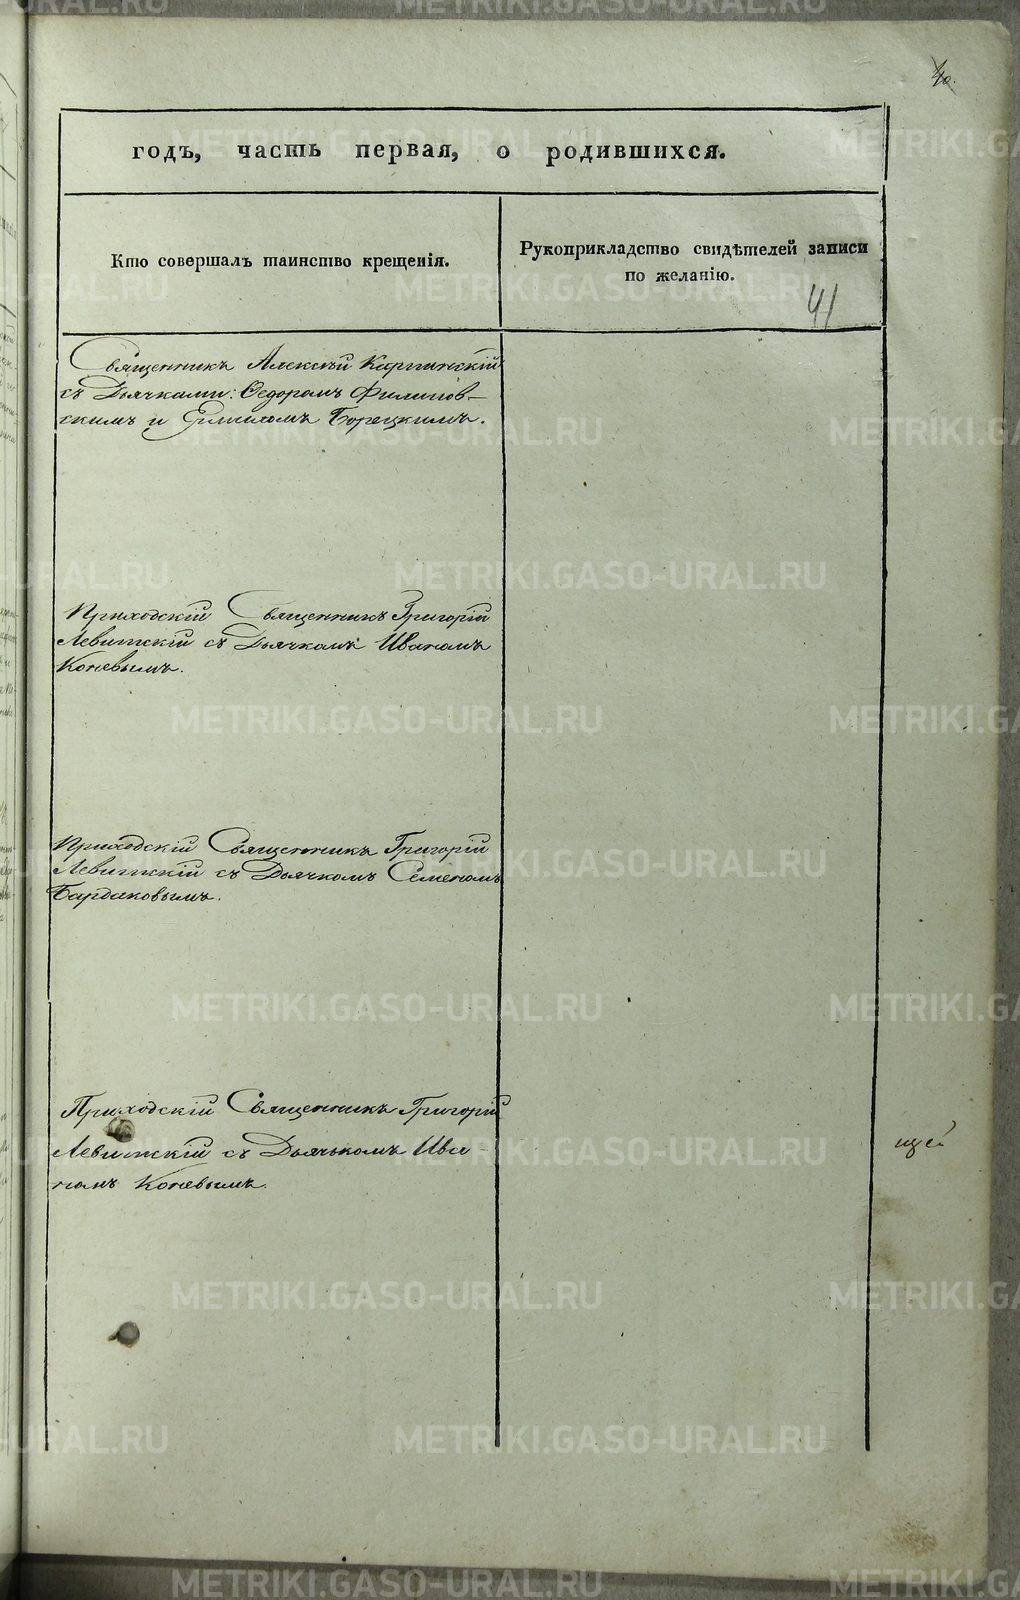 40.
годъ, часть первая, о родившихся.
Кто совершалъ таинство крещенія.
Рукоприкладство свидѣтелей записи
по желанію.
41
Священникъ Алексѣй Карпинскій
съ Дьячками: Ѳедоромъ Филипов-
скимъ и Ермиломъ Борецкимъ.
Приходскій Священникъ Григорій
Левитскій съ Дьячкомъ Иваномъ
Коневымъ.
Приходскій Священникъ Григорій
Левитскій съ Дьячкомъ Семеномъ
Бардаковымъ.
Приходскій Священникъ Григорій
Левитскій съ Дьячькомъ Ива-
номъ Коневымъ.
щей
METRIKI.GASO-URAL.RU